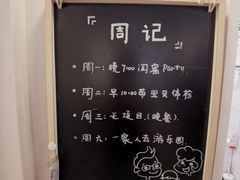 周记
周一:晚7:00闺蜜Party.
周二:早10:00带宝贝体检
周三:无项目.(晚餐)
周六:一家人去游乐园